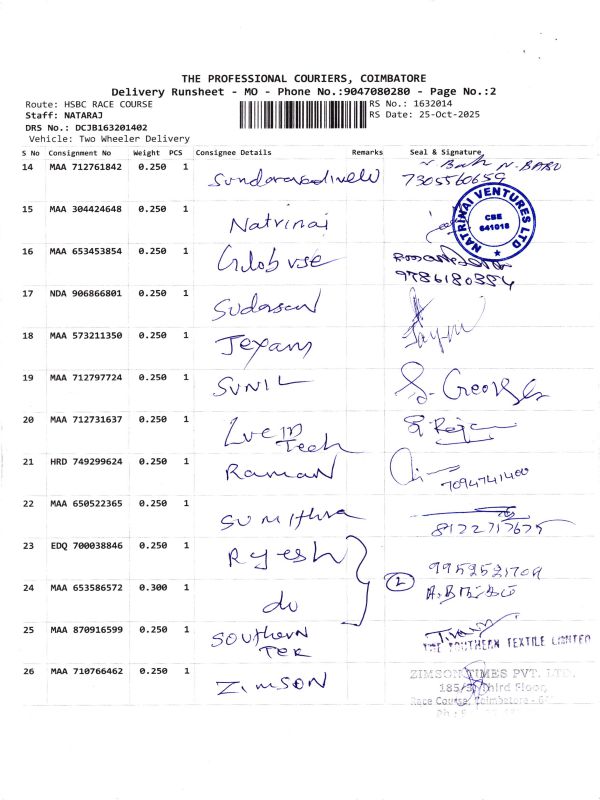 THE PROFESSIONAL COURIERS, COIMBATORE
Delivery Runsheet - MO - Phone No.:9047080280 - Page No.:2
Route: HSBC RACE COURSE RS No.: 1632014
Staff: NATARAJ RS Date: 25-Oct-2025
DRS No.: DCJB163201402
Vehicle: Two Wheeler Delivery
S No Consignment No Weight PCS Consignee Details Remarks Seal & Signature
14 MAA 712761842 0.250 1 N. BABU
7305560659
15 MAA 304424648 0.250 1 Natrinai NATRINAI VENTURES LTD CBE 641018
16 MAA 653453854 0.250 1
9786180354
17 NDA 906866801 0.250 1 Sudarsan
18 MAA 573211350 0.250 1 Jeyam
19 MAA 712797724 0.250 1 SUNIL S. George
20 MAA 712731637 0.250 1 Tech
21 HRD 749299624 0.250 1 Raman 7094741400
22 MAA 650522365 0.250 1 Sumithra 8122717675
23 EDQ 700038846 0.250 1 Rajesh
24 MAA 653586572 0.300 1 do 2
25 MAA 870916599 0.250 1 Southern Tex THE SOUTHERN TEXTILE LIMITED
26 MAA 710766462 0.250 1 ZIMSON ZIMSON TIMES PVT. LTD.
185/3, Third Floor,
Race Course, Coimbatore - 6